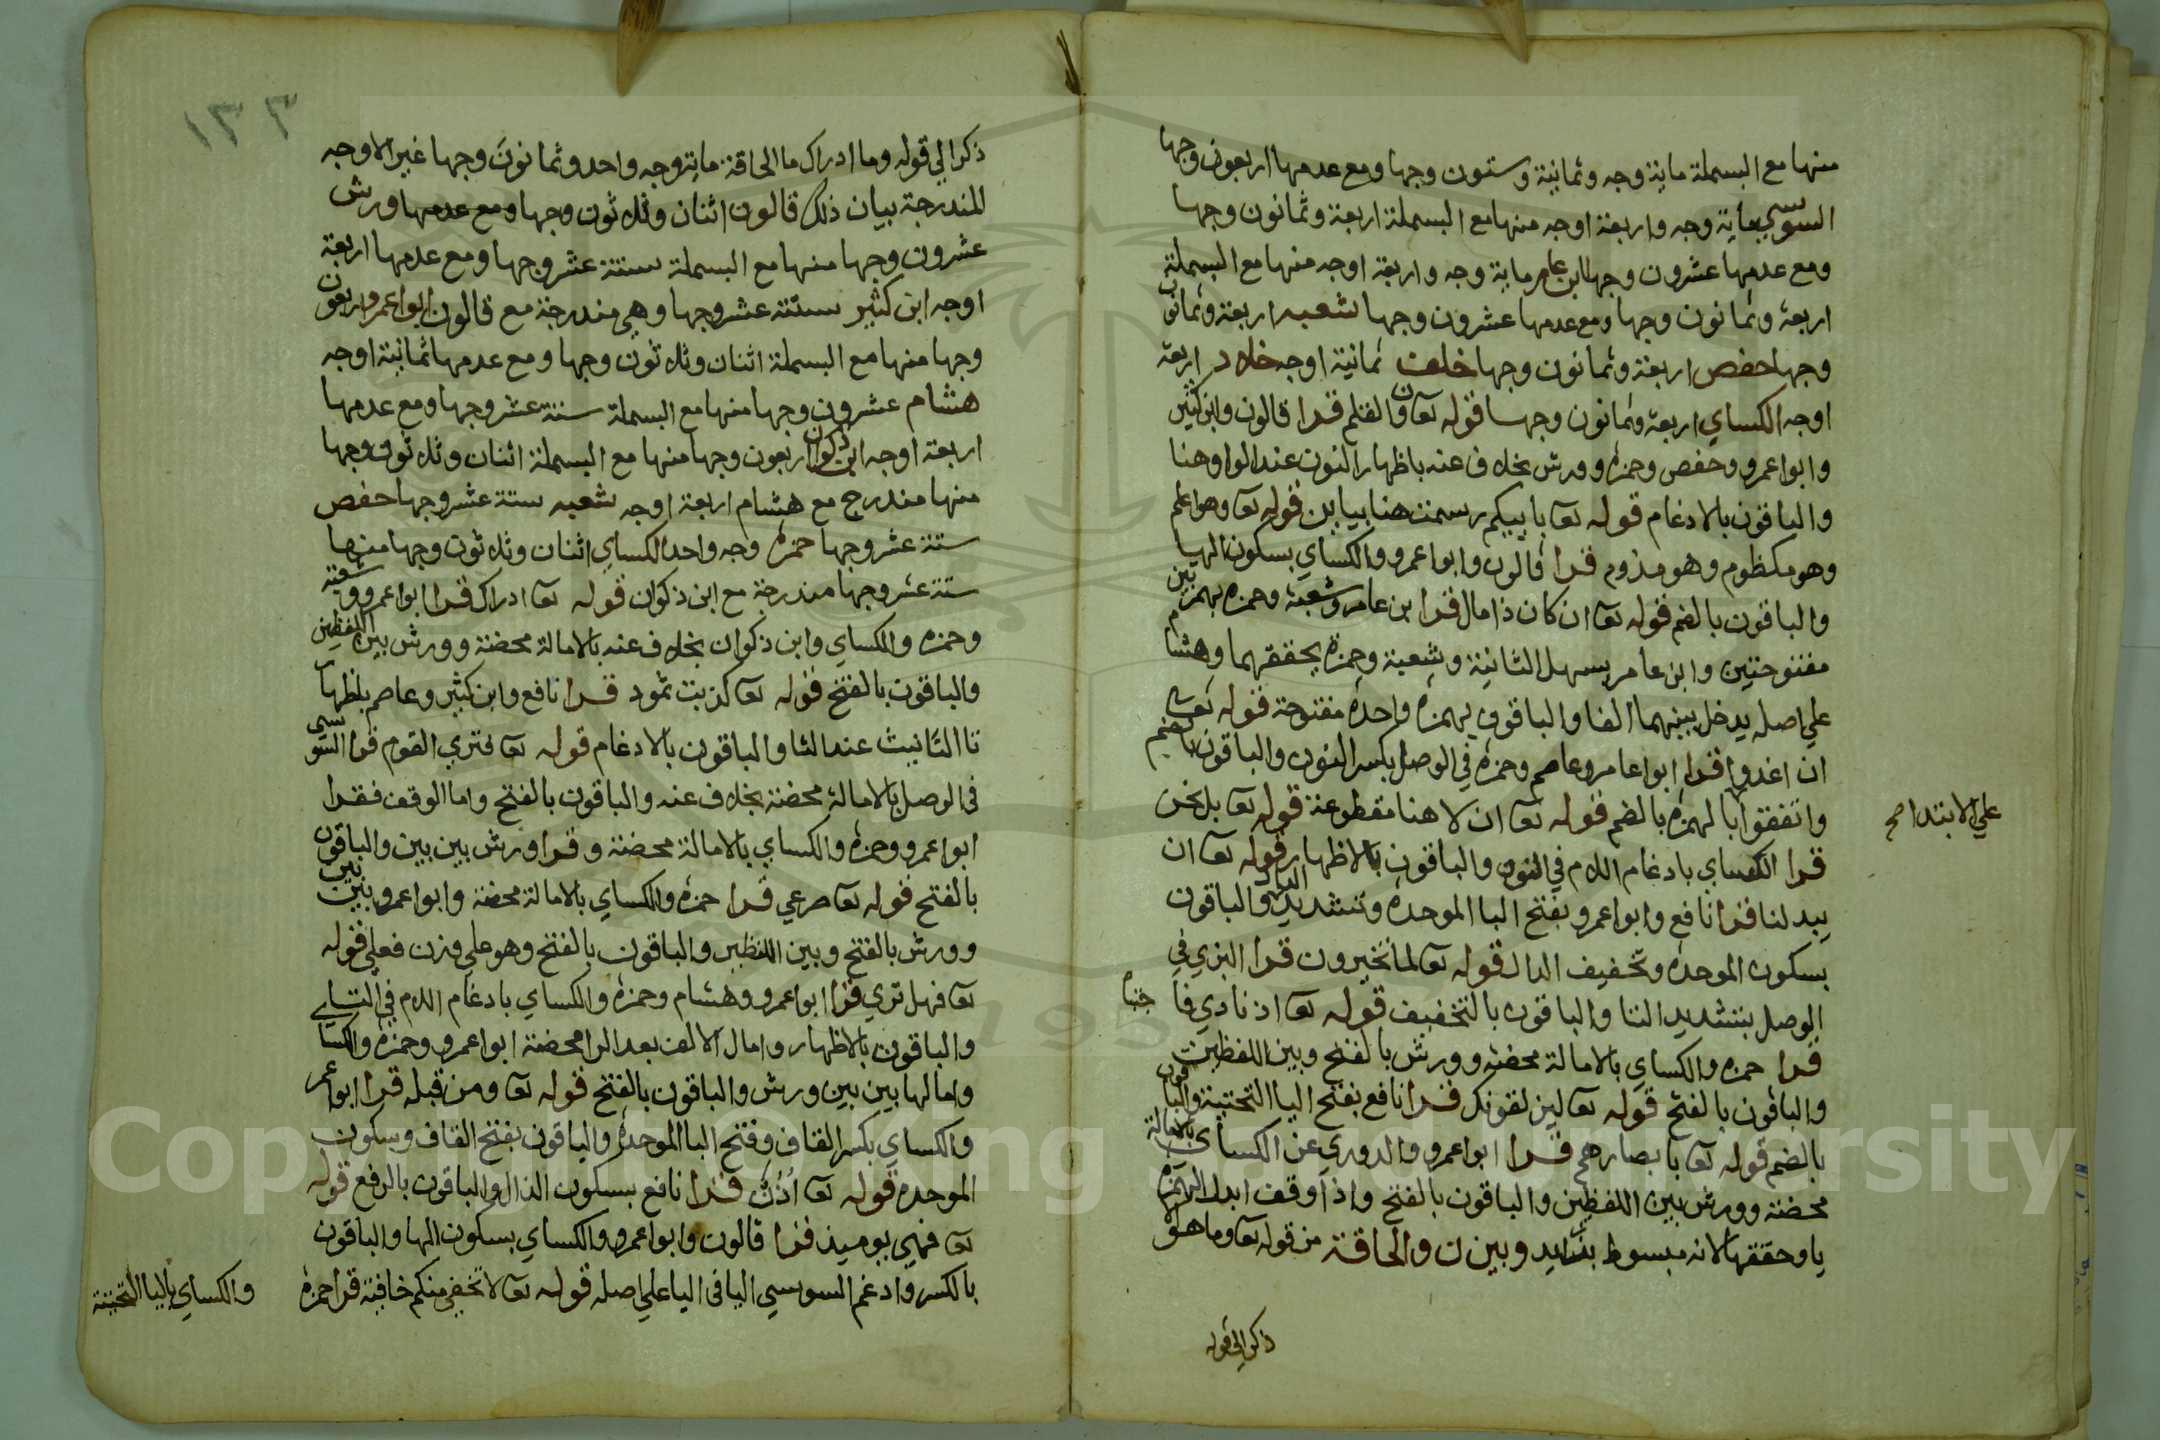 منها مع البسملة ماية وجه وثمانية وستون وجها ومع عدمها اربعون وجها
السوسي ماية وجه واربعة اوجه منها مع البسملة اربعة وثمانون وجها
ومع عدمها عشرون وجها ابن عامر ماية وجه واربعة اوجه منها مع البسملة
اربعة وثمانون وجها ومع عدمها عشرون وجها شعبه اربعة وثمانون
وجها حفص اربعة وثمانون وجها خلف ثمانية اوجه خلاد اربعة
اوجه الكساي اربعة وثمانون وجها قوله تعا ن والقلم قرا قالون وابن كثير
وابوا عمرو وحفص وحمزه وورش بخلاف عنه باظهار النون عند الواو هنا
والباقون بالادغام قوله تعا باييكم رسمت هنا بيايين قوله تعا وهو اعلم
وهو مكظوم وهو مذموم قرا قالون وابوا عمرو والكساي بسكون الهيا
والباقون بالضم قوله تعا ان كان ذا مال قرا بن عامر وشعبة وحمزه بهمزتين
مفتوحتين وابن عامر يسهل الثانية وشعبة وحمزة بحققهما وهشام
علي اصله يدخل بينهما الفا والباقون بهمزه واحده مفتوحة قوله تعا
ان اغدوا قرا ابوا عامر وعاصم وحمزه في الوصل بكسر النون والباقون بالضم
واتفقوا بالهمزه بالضم قوله تعا ان لا هنا مقطوعة قوله تعا بل نحن
علي الابتدا صح
قرا الكساي بادغام اللام في النون والباقون بالاظهار قوله تعا ان
يبدلنا قرا نافع وابوا عمرو بفتح البا الموحده وتشديد الدال والباقون
بسكون الموحده وتخفيف الدال قوله تعا لما تخيرون قرا البزي في
الوصل بتشديد التا والباقون بالتخفيف قوله تعا اذ نادي فاجتباه
قرا حمزه والكساي بالامالة محضة وورش بالفتح وبين اللفظين
والباقون بالفتح قوله تعا ليزلقونك قرا نافع بفتح اليا التحتية والباقون
بالضم قوله تعا بابصارهم قرا ابوا عمرو والدوري عن الكساي بالامالة
محضة وورش بين اللفظين والباقون بالفتح واذا وقف ابدل الهمزة
يا وحققها لانه مبسوط بقتايد وبين ن والحاقة من قوله تعا وما هو الا
ذكر الي قوله
١٣٣
ذكر الي قوله وما ادراك ما الحاقة ماية وجه واحد وثمانون وجها غير الاوجه
المندرجة بيان ذلك قالون اثنان وثلاثون وجها ومع عدمها ورش
عشرون وجها منها مع البسملة ستة عشر وجها ومع عدمها اربعة
اوجه ابن كثير ستة عشر وجها وهي مندرجة مع قالون ابوا عمرو اربعون
وجها منها مع البسملة اثنان وثلاثون وجها ومع عدمها ثمانية اوجه
هشام عشرون وجها منها مع البسملة ستة عشر وجها ومع عدمها
اربعة اوجه ابن ذكوان اربعون وجها منها مع البسملة اثنان وثلاثون وجها
منها مندرج مع هشام اربعة اوجه شعبه ستة عشر وجها حفص
ستة عشر وجها حمزه وجه واحد الكساي اثنان وثلاثون وجها منها
ستة عشر وجها مندرجة مع ابن ذكوان قوله تعا ادراك قرا ابوا عمرو وشعبة
وحمزه والكساي وابن ذكوان بخلاف عنه بالامالة محضة وورش بين اللفظين
والباقون بالفتح قوله تعا كذبت ثمود قرا نافع وابن كثير وعاصم باظهار
تا التانيث عند الثا والباقون بالادغام قوله تعا فتري القوم قرا السوسي
في الوصل بالامالة محضة بخلاف عنه والباقون بالفتح واما الوقف فقرا
ابوا عمرو وحمزه والكساي بالامالة محضة وقرا ورش بين بين والباقون
بالفتح قوله تعا صرعي قرا حمزه والكساي بالامالة محضة وابوا عمرو بين بين
وورش بالفتح وبين اللفظين والباقون بالفتح وهو علي وزن فعلي قوله
تعا فهل تري قرا ابوا عمرو وهشام وحمزه والكساي بادغام اللام في التا
والباقون بالاظهار وامال الالف بعد الرا محضة ابوا عمرو وحمزه والكساي
وامالها بين بين ورش والباقون بالفتح قوله تعا ومن قبله قرا ابوا عمرو
والكساي بكسر القاف وفتح البا الموحده والباقون بفتح القاف وسكون
الموحده قوله تعا اُذُن قرا نافع بسكون الذال والباقون بالرفع قوله
تعا فهي يوميذ قرا قالون وابوا عمرو والكساي بسكون الها والباقون
بالكسر وادغم السوسي اليا في اليا علي اصله قوله تعا لا تخفي منكم خافية قرا حمزه
والكساي باليا التحتية
Copyright © King Saud University
195